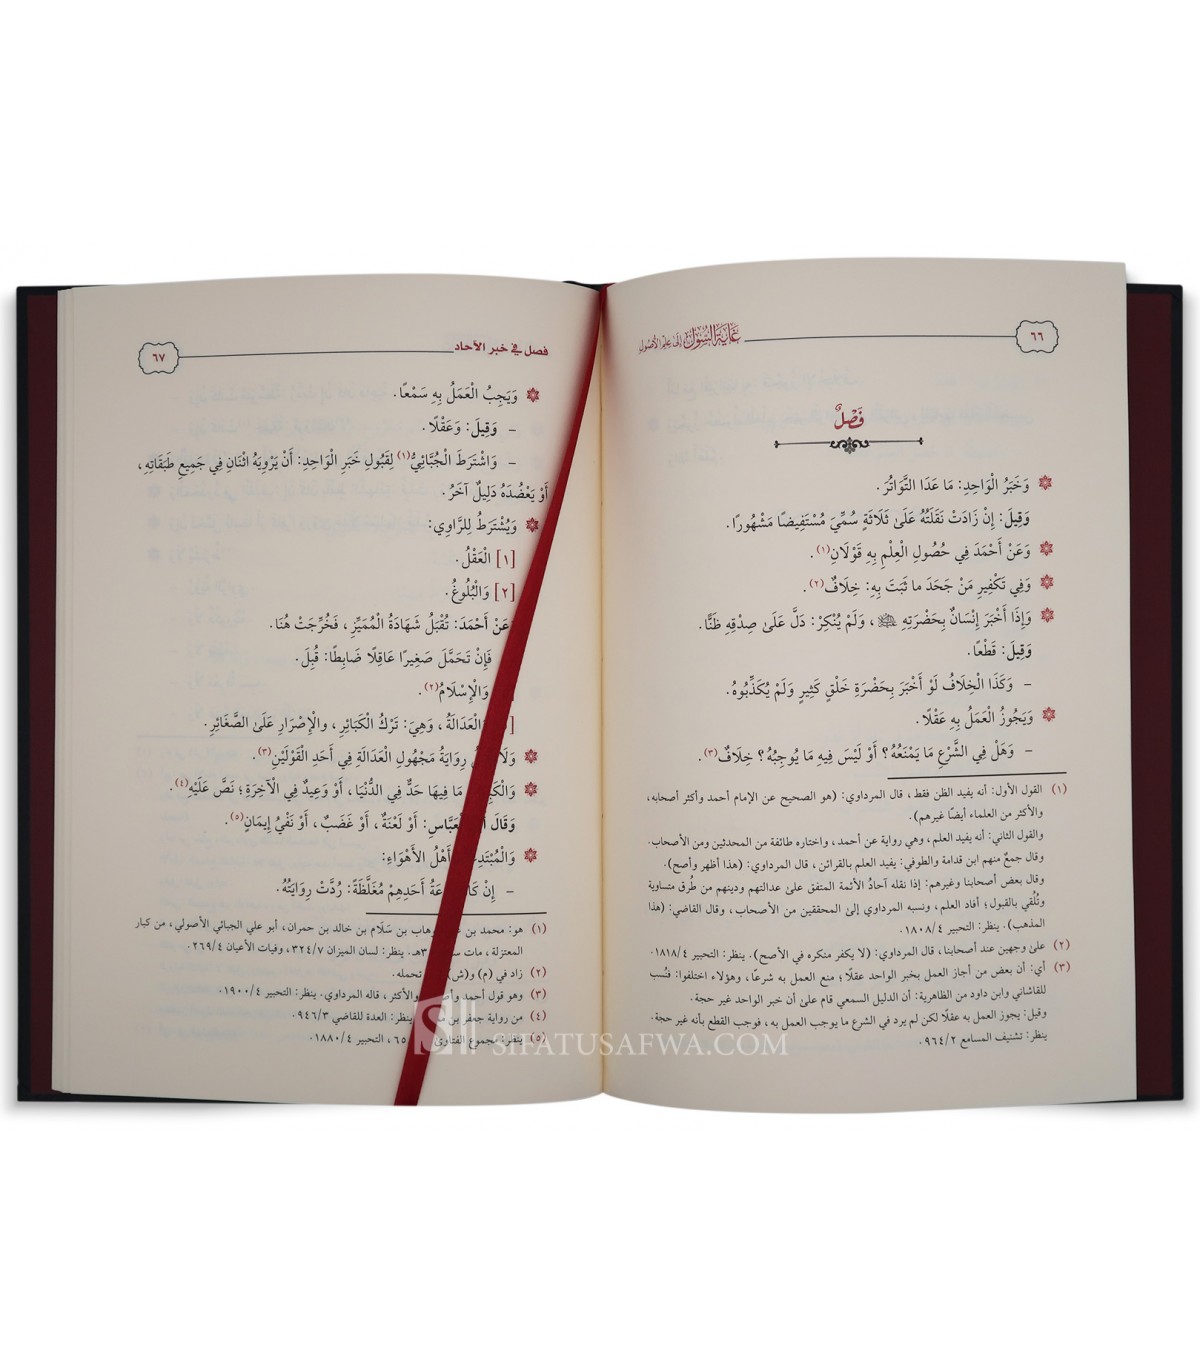 ٦٦
غاية السول إلى علم الأصول
فَصْلٌ
وَخَبَرُ الْوَاحِدِ: مَا عَدَا التَّوَاتُرَ.
وَقِيلَ: إِنْ زَادَتْ نَقَلَتُهُ عَلَىٰ ثَلَاثَةٍ سُمِّيَ مُسْتَفِيضًا مَشْهُورًا.
وَعَنْ أَحْمَدَ فِي حُصُولِ الْعِلْمِ بِهِ قَوْلَانِ(١).
وَفِي تَكْفِيرِ مَنْ جَحَدَ ما ثَبَتَ بِهِ: خِلَافٌ(٢).
وَإِذَا أَخْبَرَ إِنْسَانٌ بِحَضْرَتِهِ ﷺ، وَلَمْ يُنْكِرْ: دَلَّ عَلَىٰ صِدْقِهِ ظَنًّا.
وَقِيلَ: قَطْعًا.
- وَكَذَا الْخِلَافُ لَوْ أَخْبَرَ بِحَضْرَةِ خَلْقٍ كَثِيرٍ وَلَمْ يُكَذِّبُوهُ.
وَيَجُوزُ الْعَمَلُ بِهِ عَقْلًا.
- وَهَلْ فِي الشَّرْعِ مَا يَمْنَعُهُ؟ أَوْ لَيْسَ فِيهِ مَا يُوجِبُهُ؟ خِلَافٌ(٣).
(١) القول الأول: أنه يفيد الظن فقط، قال المرداوي: (هو الصحيح عن الإمام أحمد وأكثر أصحابه،
والأكثر من العلماء أيضًا غيرهم).
والقول الثاني: أنه يفيد العلم، وهي رواية عن أحمد، واختاره طائفة من المحدثين ومن الأصحاب.
وقال جمعٌ منهم ابن قدامة والطوفي: يفيد العلم بالقرائن، قال المرداوي: (هذا أظهر وأصح).
وقال بعض أصحابنا وغيرهم: إذا نقله آحادُ الأئمة المتفق علىٰ عدالتهم ودينهم من طُرق متساوية
وتُلُقي بالقبول؛ أفاد العلم، ونسبه المرداوي إلىٰ المحققين من الأصحاب، وقال القاضي: (هذا
المذهب). ينظر: التحبير ١٨٠٨/٤.
(٢) علىٰ وجهين عند أصحابنا، قال المرداوي: (لا يكفر منكره في الأصح). ينظر: التحبير ١٨١٨/٤.
(٣) أي: أن بعض من أجاز العمل بخبر الواحد عقلًا؛ منع العمل به شرعًا، وهؤلاء اختلفوا: فنُسب
للقاشاني وابن داود من الظاهرية: أن الدليل السمعي قام علىٰ أن خبر الواحد غير حجة.
وقيل: يجوز العمل به عقلًا لكن لم يرد في الشرع ما يوجب العمل به، فوجب القطع بأنه غير حجة.
ينظر: تشنيف المسامع ٩٦٤/٢.
فصل في خبر الآحاد
٦٧
وَيَجِبُ الْعَمَلُ بِهِ سَمْعًا.
- وَقِيلَ: وَعَقْلًا.
- وَاشْتَرَطَ الْجُبَّائِيُّ(١) لِقَبُولِ خَبَرِ الْوَاحِدِ: أَنْ يَرْوِيَهُ اثْنَانِ فِي جَمِيعِ طَبَقَاتِهِ،
أَوْ يَعْضُدَهُ دَلِيلٌ آخَرُ.
وَيُشْتَرَطُ لِلرَّاوِي:
[١] الْعَقْلُ.
[٢] وَالْبُلُوغُ.
عَنْ أَحْمَدَ: تُقْبَلُ شَهَادَةُ الْمُمَيِّزِ، فَخُرِّجَتْ هُنَا.
فَإِنْ تَحَمَّلَ صَغِيرًا عَاقِلًا ضَابِطًا: قُبِلَ.
وَالْإِسْلَامُ(٢).
الْعَدَالَةُ، وَهِيَ: تَرْكُ الْكَبَائِرِ، والْإِصْرَارِ عَلَىٰ الصَّغَائِرِ.
رِوَايَةُ مَجْهُولِ الْعَدَالَةِ فِي أَحَدِ الْقَوْلَيْنِ(٣).
مَا فِيهَا حَدٌّ فِي الدُّنْيَا، أَوْ وَعِيدٌ فِي الْآخِرَةِ؛ نَصَّ عَلَيْهِ(٤).
وَقَالَ الْعَبَّاسِ: أَوْ لَعْنَةٌ، أَوْ غَضَبٌ، أَوْ نَفْيُ إِيمَانٍ(٥).
أَهْلُ الْأَهْوَاءِ:
- إِنْ أَحَدِهِمْ مُغَلَّظَةً: رُدَّتْ رِوَايَتُهُ.
(١) هو: محمد بن بن سَلَام بن خالد بن حمران، أبو علي الجبائي الأصولي، من كبار
المعتزلة، مات ينظر: لسان الميزان ٣٢٤/٧، وفيات الأعيان ٢٦٩/٤.
(٢) زاد في (م) و(ش) تحمله.
(٣) وهو قول أحمد والأكثر، قاله المرداوي. ينظر: التحبير ١٩٠٠/٤.
(٤) من رواية جعفر بن ينظر: العدة للقاضي ٩٤٦/٣.
(٥) ينظر: مجموع الفتاوى التحبير ١٨٨٠/٤.
SIFATUSAFWA.COM